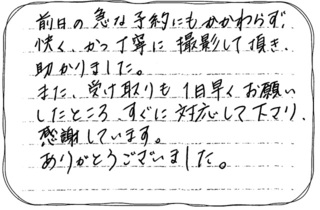 前日の急な予約にもかかわらず、
快く、かつ丁寧に撮影して頂き、
助かりました。
また、受け取りも1日早くお願い
したところ、すぐに対応して下さり、
感謝しています。
ありがとうございました。